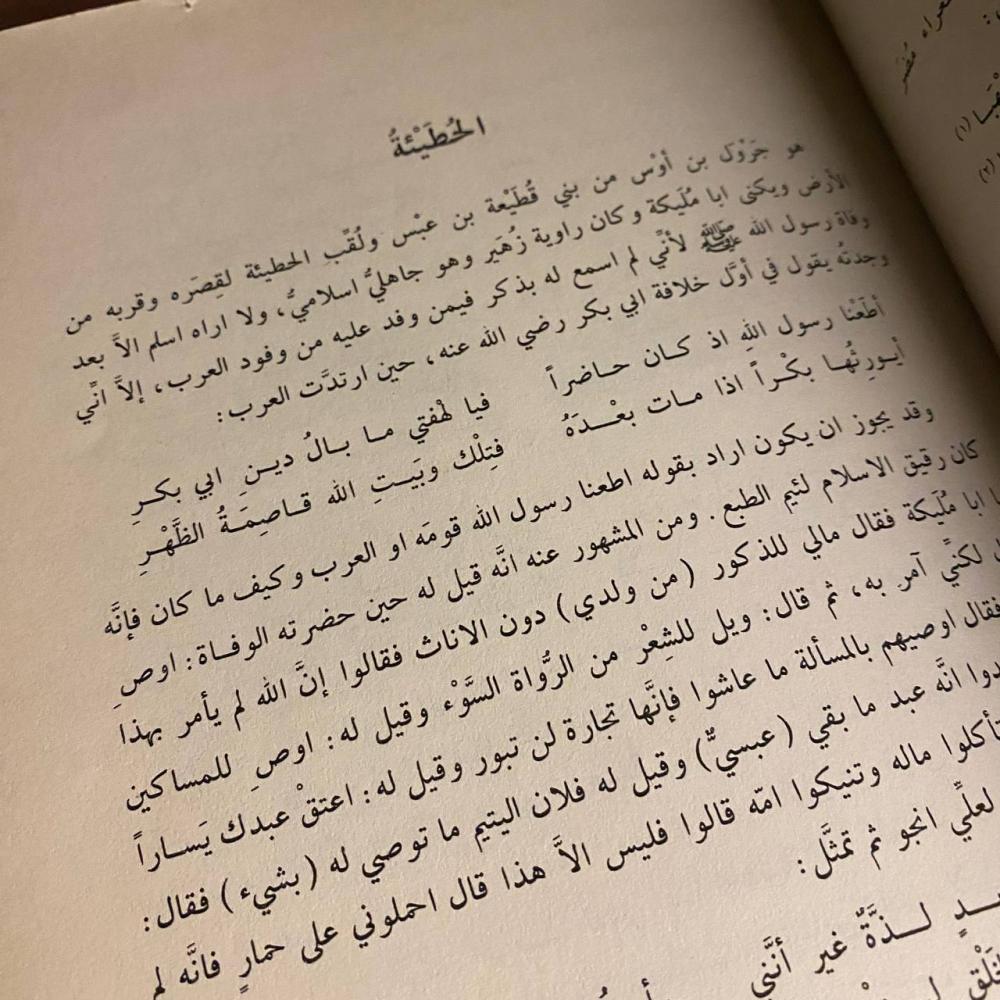 الحُطَيْئةُ
هو جَرْوَل بن أوْس من بني قُطَيْعة بن عبْس ولُقِّب الحطيئة لقِصَره وقربه من
الأرض ويكنى ابا مُلَيكة وكان راوية زُهَير وهو جاهليُّ اسلاميُّ، ولا اراه اسلم الاَّ بعد
وفاة رسول الله ﷺ لأنِّي لم اسمع له بذكر فيمن وفد عليه من وفود العرب، إلاَّ انِّي
وجدتُه يقول في أوَّل خلافة ابي بكر رضي الله عنه، حين ارتدَّت العرب:
أطَعْنا رسول اللهِ اذ كـان حـاضراً فيا لهْفتي مـا بـالُ ديـنِ ابي بكـرِ
أيـورِثُهـا بكْـراً اذا مـات بعْـدَهُ فتِلْك وبَيـتِ الله قـاصِمَـةُ الظَّهْـرِ
وقد يجوز ان يكون اراد بقوله اطعنا رسول الله قومَه او العرب وكيف ما كان فإنَّه
كان رقيق الاسلام لئيم الطبع. ومن المشهور عنه انَّه قيل له حين حضرته الوفـاة: اوصِ
ابا مُلَيكة فقال مالي للذكور (من ولدي) دون الاناث فقالوا إنَّ الله لم يأمر بهذا
لكنِّي آمر به، ثم قال: ويل للشِعْر من الرُّواة السَّوْء وقيل له: اوصِ للمساكين
فقال اوصيهم بالمسألة ما عاشوا فإنَّها تجارة لن تبور وقيل له: اعتقْ عبدك يَسـاراً
انَّه عبد ما بقي (عبسيٌّ) وقيل له فلان اليتيم ما توصي له (بشيء) فقال:
تأكلوا ماله وتنيكوا امّه قالوا فليس الاَّ هذا قال احملوني على حمارٍ فانَّه لم
لعلِّي انجو ثم تمثَّل:
لـذَّةٌ غير أنَّني